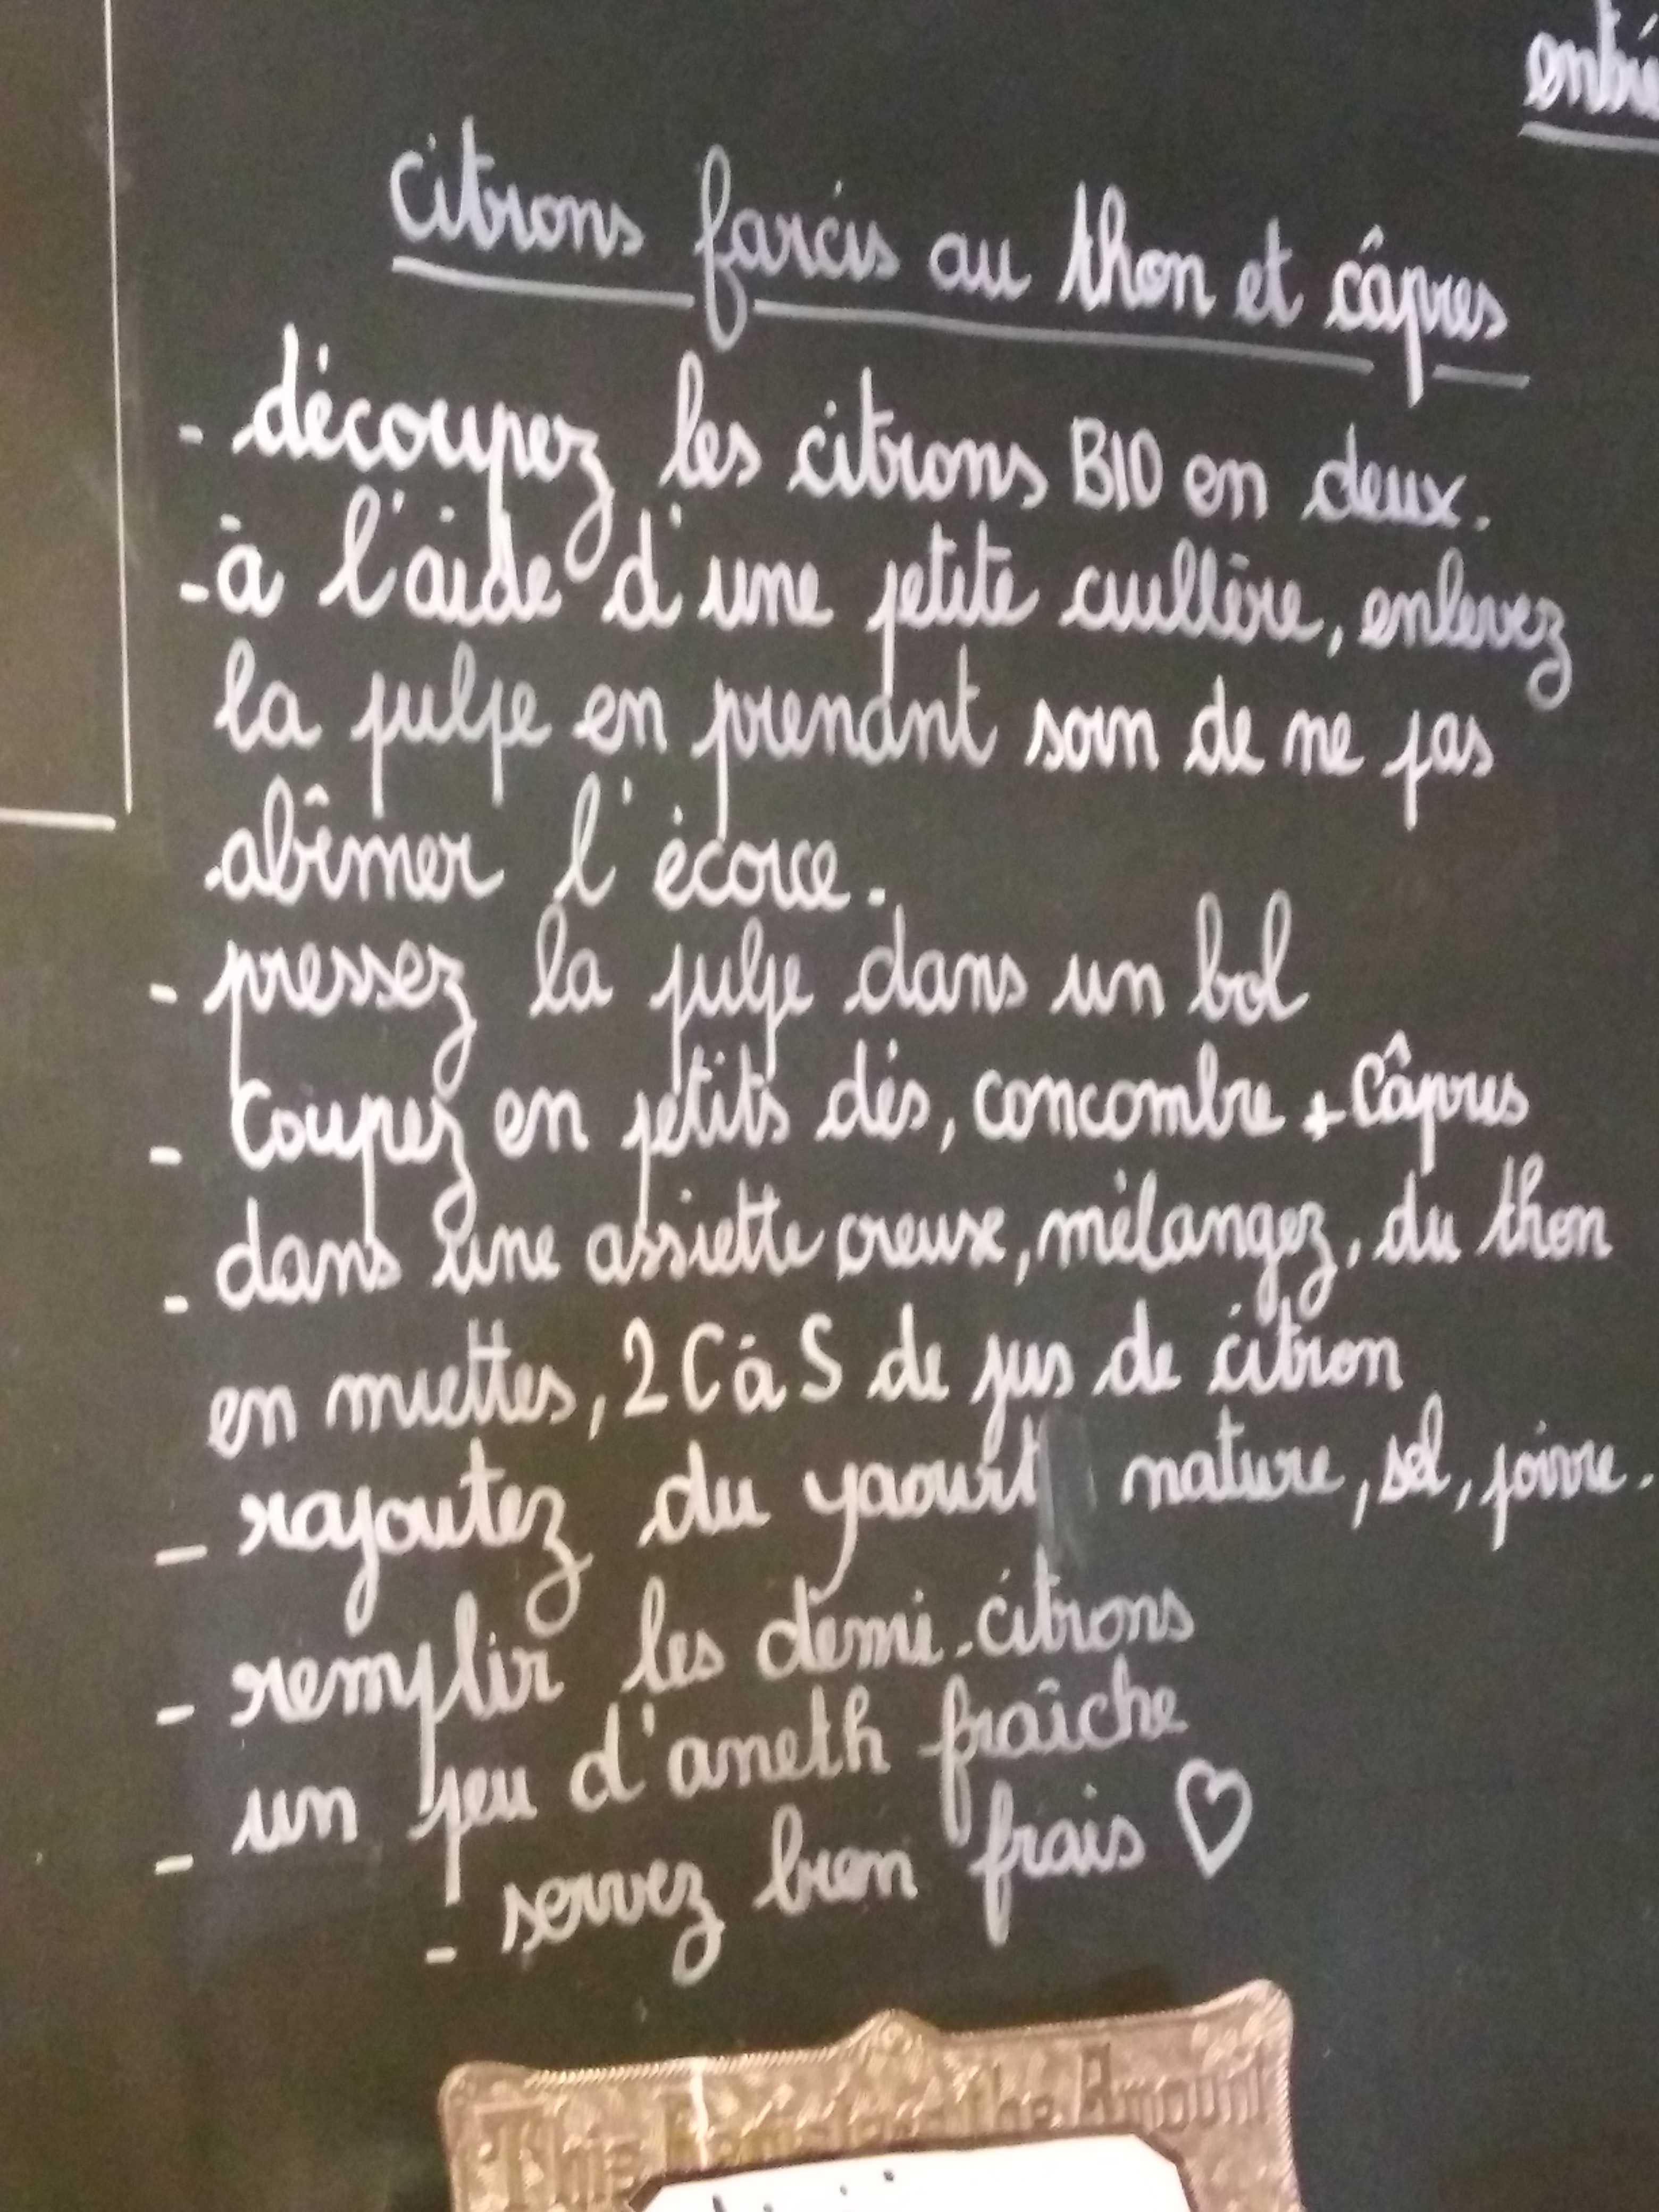 entré
citrons farcis au thon et câpres
- découpez les citrons BIO en deux.
- à l'aide d'une petite cuillère, enlevez
la pulpe en prenant soin de ne pas
abîmer l'écorce.
- pressez la pulpe dans un bol
- Coupez en petits dés, concombre + Câpres
- dans une assiette creuse, mélangez, du thon
en miettes, 2 C à S de jus de citron
- rajoutez du yaourt nature, sel, poivre.
- remplir les demi-citrons
- un peu d'aneth fraîche
- servez bien frais ♡
This Register the Amount